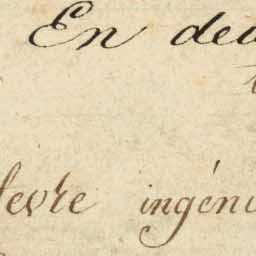 En deu
fevre ingéni